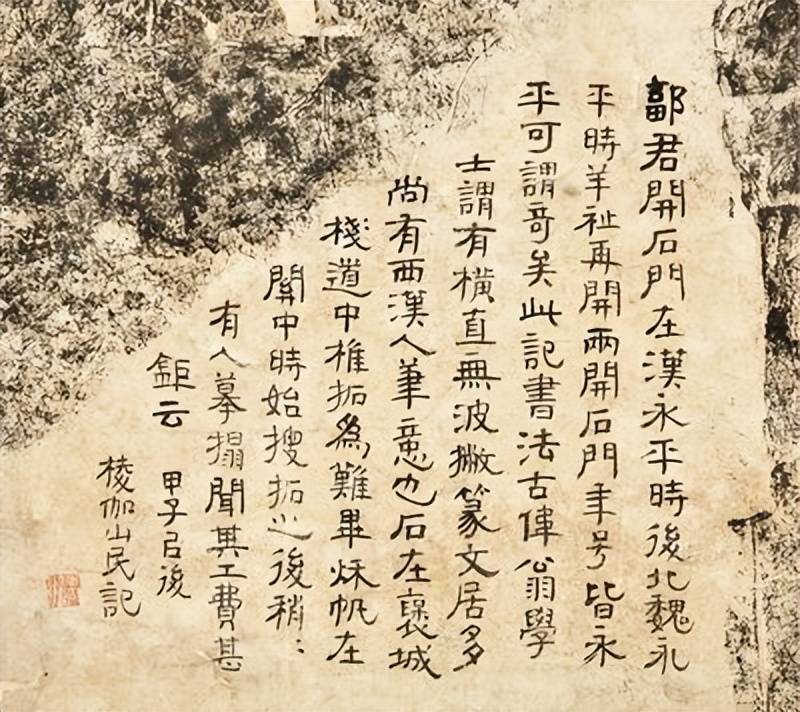 鄐君開石門在漢永平時後北魏永
平時羊祉再開兩開石門年号皆永
平可謂奇矣此記書法古偉翁學
士謂有橫直無波撇篆文居多
尚有西漢人筆意也石在褒城
棧道中椎拓為難畢秌帆在
關中時始搜拓之後稍〻
有人摹搨聞其工費甚
鉅云 甲子㠯後
棱伽山民記